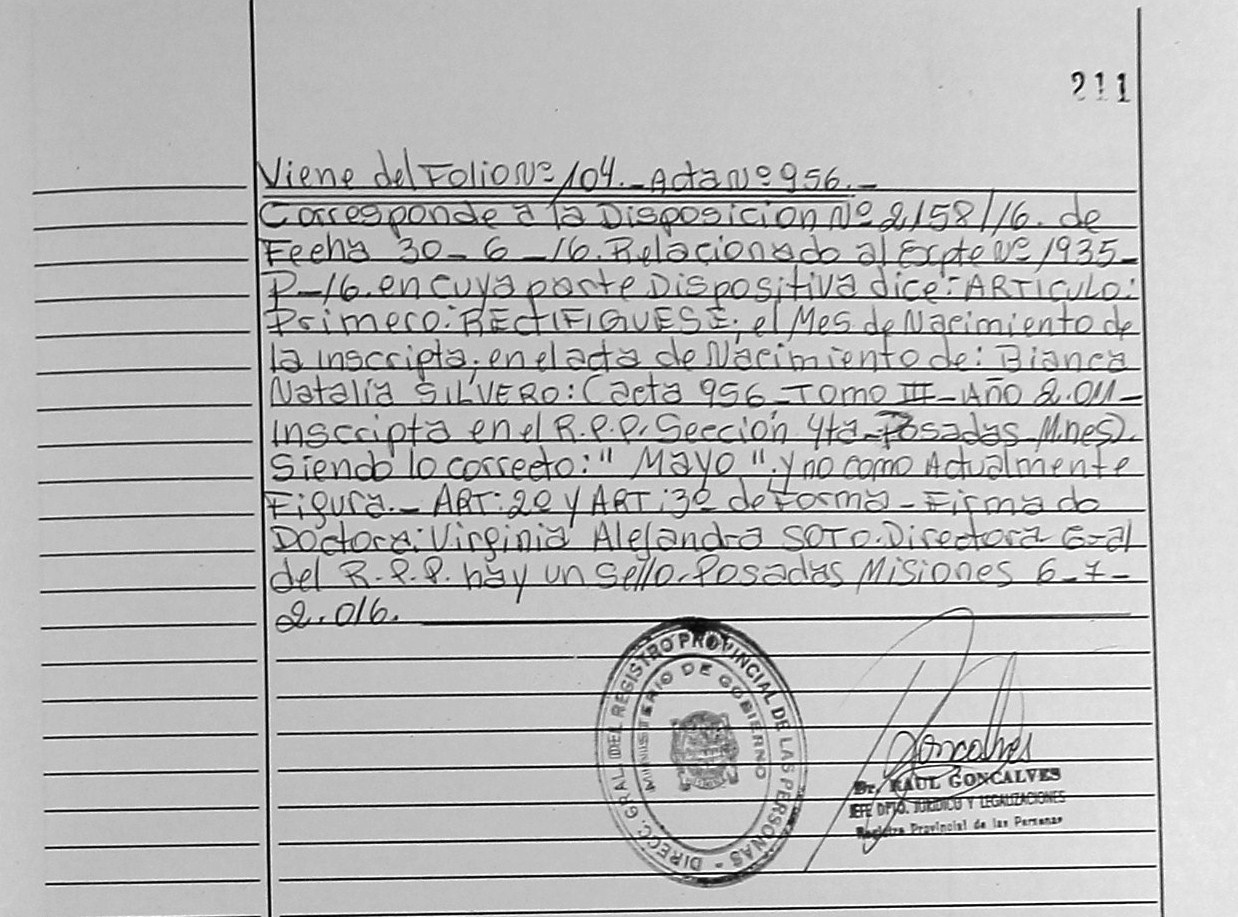 211
Viene del Folio Nº 104._ Acta Nº 956._
Corresponde a la Disposicion Nº 2158/16. de
Fecha 30_6_16. Relacionado al Expte Nº 1935_
P_16. en cuya parte Dispositiva dice: ARTICULO:
Primero: RECTIFIQUESE; el Mes de Nacimiento de
la inscripta; en el acta de Nacimiento de: Bianca
Natalia SILVERO: (acta 956_Tomo III_Año 2.011_
Inscripta en el R.P.P. Sección 4ta_Posadas_Mnes).
Siendo lo correcto: "Mayo". y no como Actualmente
Figura._ ART: 2º y ART: 3º de Forma_Firmado
Doctora: Virginia Alejandra SOTO. Directora Gral
del R.P.P. hay un sello. Posadas Misiones 6_7_
2.016.
DIRECC. GRAL DEL REGISTRO PROVINCIAL DE LAS PERSONAS -
MINISTERIO DE GOBIERNO
Goncalves
Dr. RAUL GONCALVES
JEFE DPTO. JURIDICO Y LEGALIZACIONES
Registro Provincial de las Personas